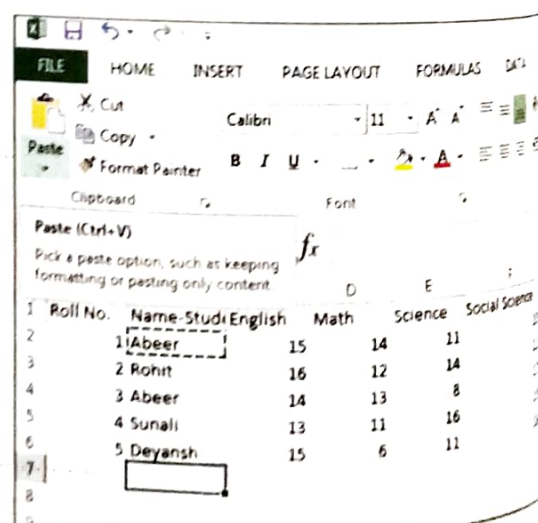 FILE HOME INSERT PAGE LAYOUT FORMULAS DATA
Cut
Calibri 11 A A
Copy
Paste
Format Painter
B I U A
Clipboard Font
Paste (Ctrl+V)
Pick a paste option, such as keeping
formatting or pasting only content.
fx
D E F
1 Roll No. Name-Studi English Math Science Social Science
2 1 Abeer 15 14 11
3 2 Rohit 16 12 14
4 3 Abeer 14 13 8
5 4 Sunali 13 11 16
6 5 Deyansh 15 6 11
7
8
9